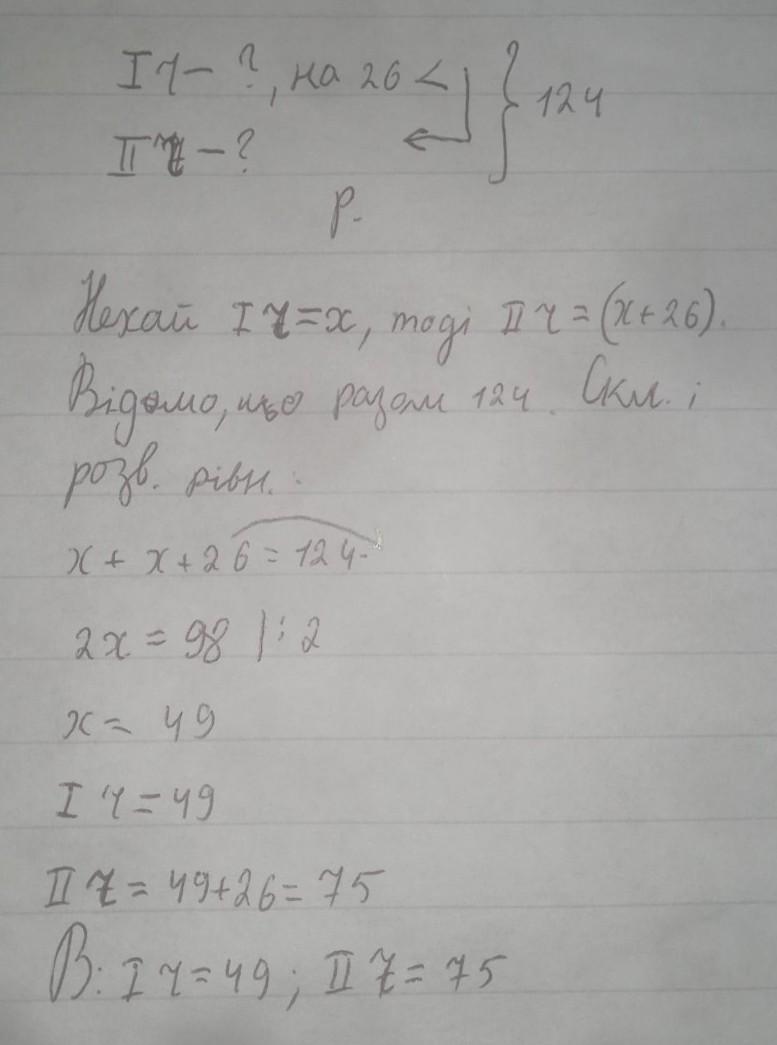 I ч - ?, на 26 < } 124
II ч - ?
Р.
Нехай I ч = x, тоді II ч = (x + 26).
Відомо, що разом 124. Скл. і
розв. рівн.:
x + x + 26 = 124-
2x = 98 |:2
x = 49
I ч = 49
II ч = 49+26 = 75
В: I ч = 49; II ч = 75